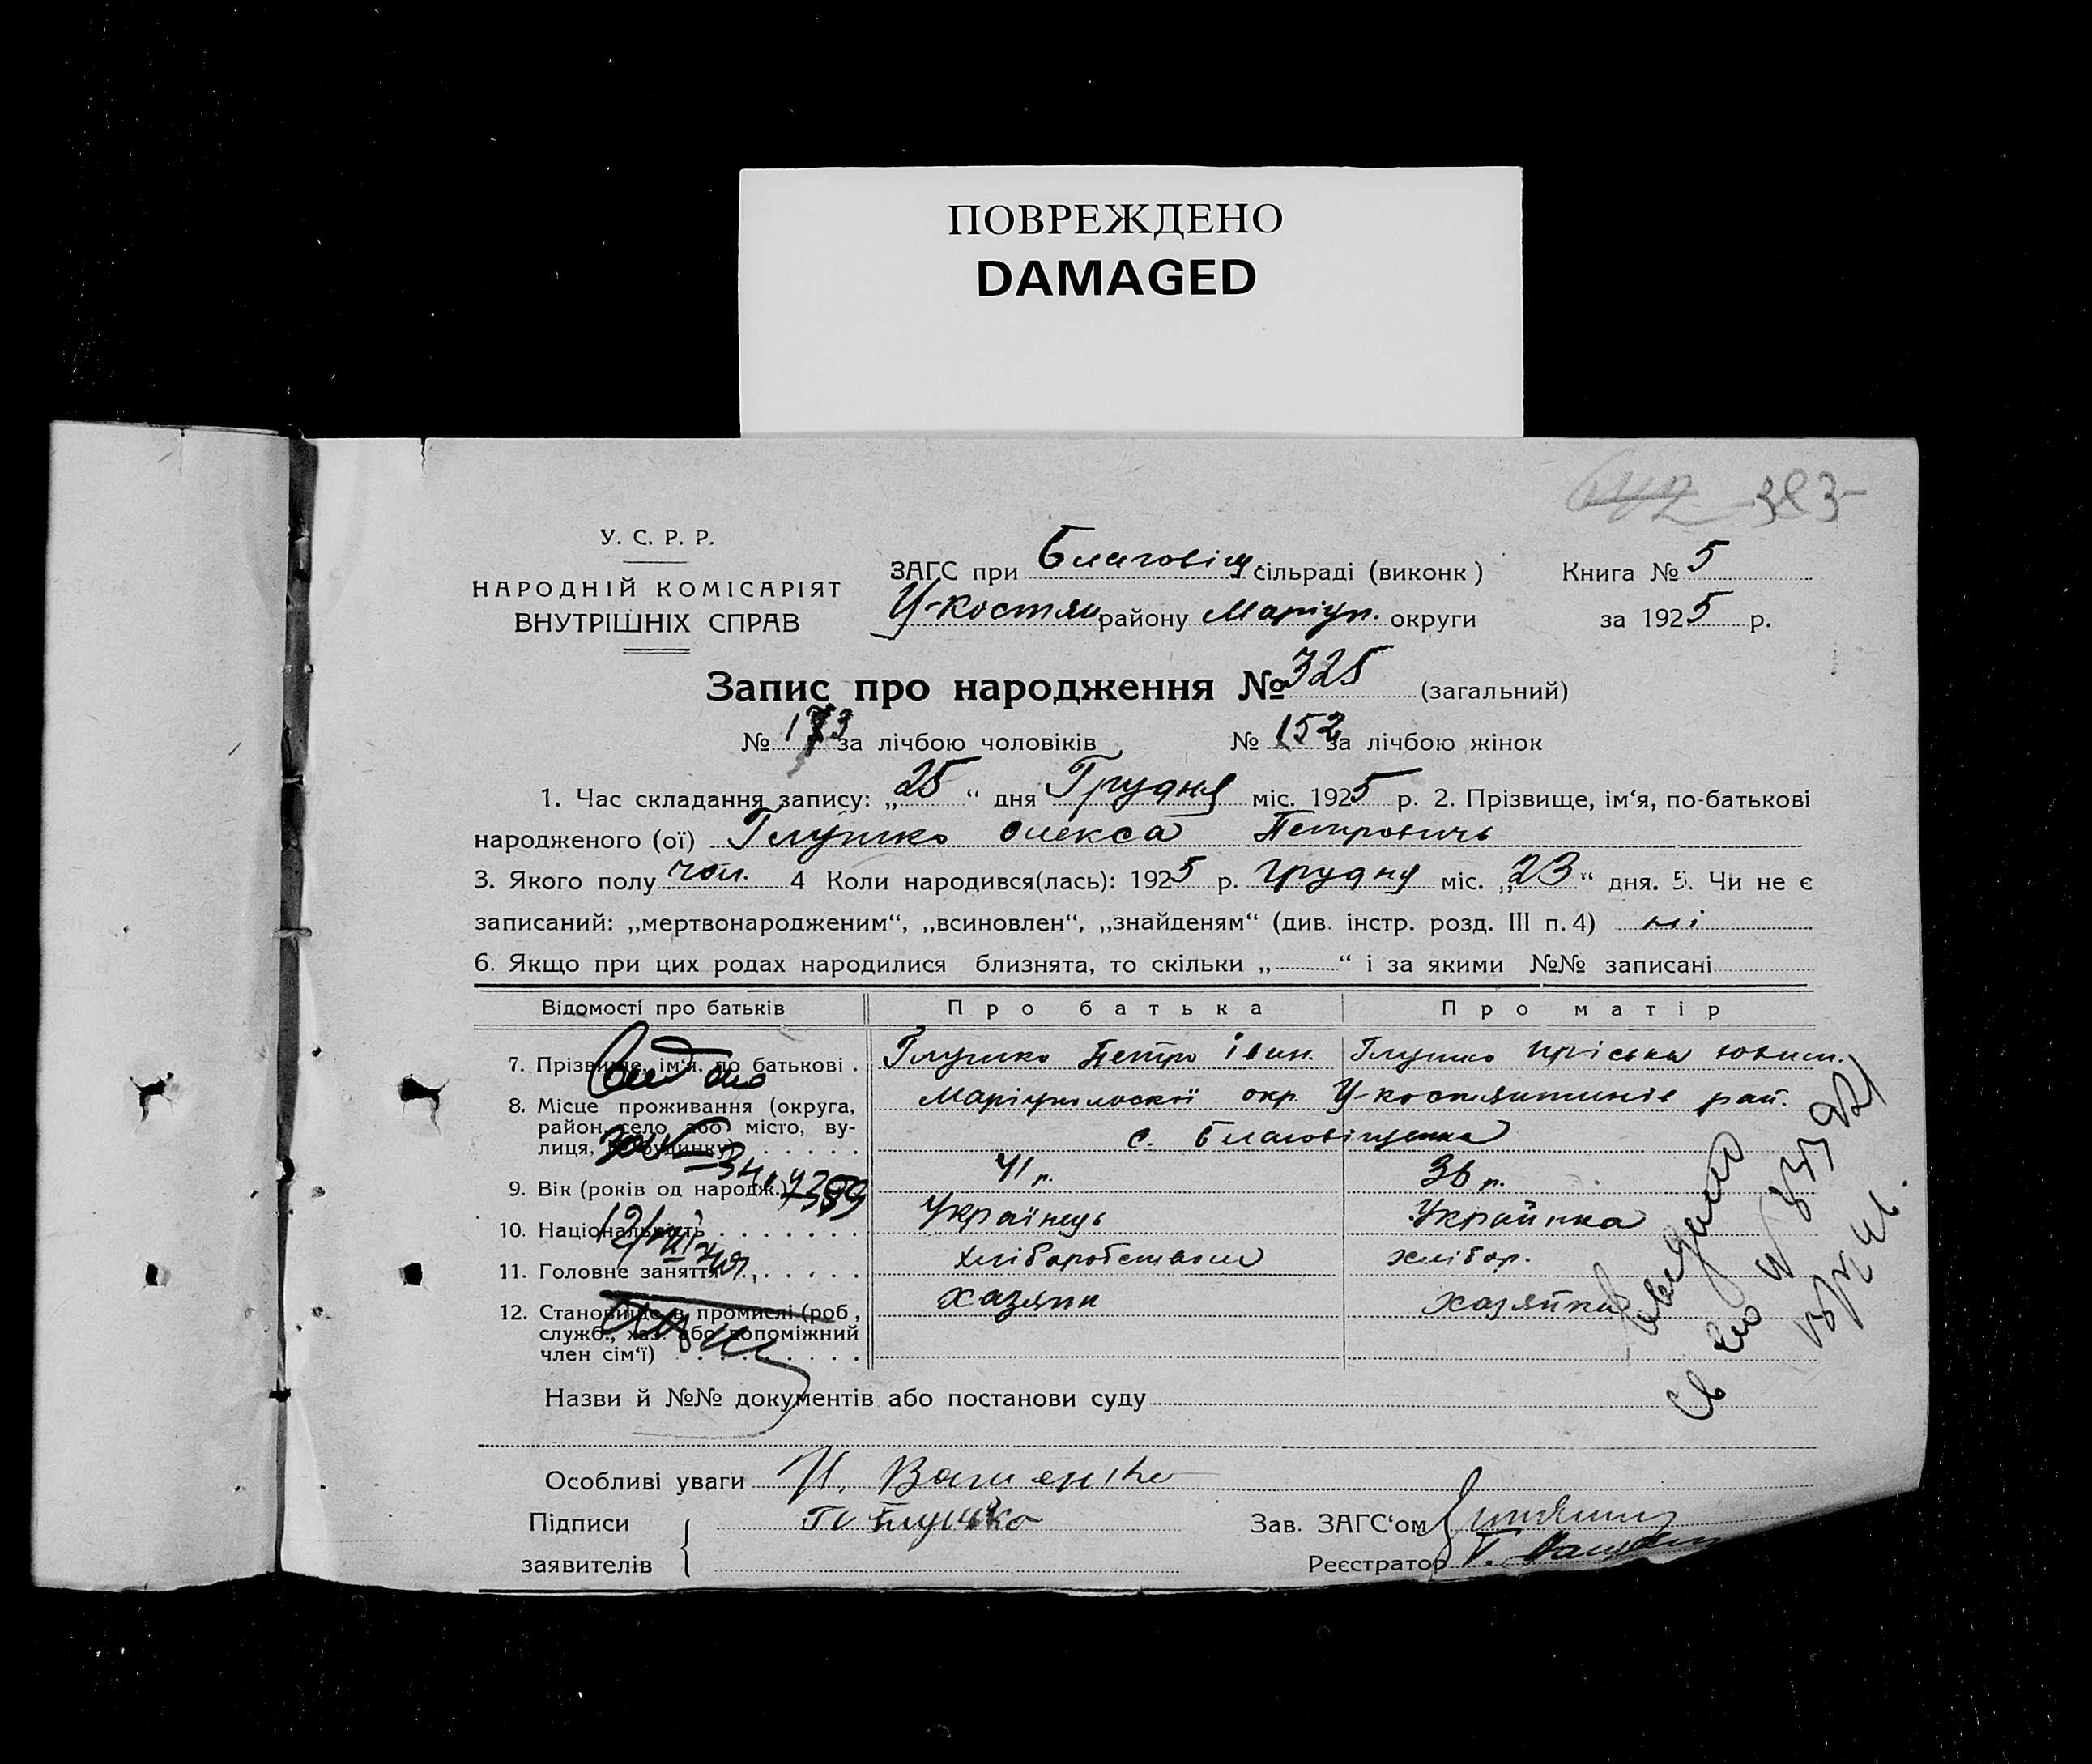 ПОВРЕЖДЕНО
DAMAGED
383
У. С. Р. Р.
НАРОДНІЙ КОМІСАРІЯТ
ВНУТРІШНІХ СПРАВ
ЗАГС при Благовіщ сільраді (виконк) Книга № 5
У-Костян району Маріуп. округи за 1925 р.
Запис про народження № 325 (загальний)
№ 173 за лічбою чоловіків № 152 за лічбою жінок
1. Час складання запису: „25“ дня Грудня міс. 1925 р. 2. Прізвище, ім‘я, по-батькові
народженого (ої) Глушко Олекса Петровичь
3. Якого полу чол. 4 Коли народився(лась): 1925 р. грудня міс. „23“ дня. 5. Чи не є
записаний: „мертвонародженим“, „всиновлен“, „знайденям“ (див. інстр. розд. III п. 4) ні
6. Якщо при цих родах народилися близнята, то скільки „ “ і за якими №№ записані
Відомості про батьків Про батька Про матір
7. Прізвище, ім‘я, по батькові . Глушко Петро Іван. Глушко Пріська
8. Місце проживання (округа, Маріупольскої окр. У-костянтинів рай.
район, село або місто, ву-
лиця, № будинку) с. Благовіщенка
9. Вік (років од народж.) 41 р. 36 р.
10. Національність Українець Українка
11. Головне заняття хліборобством хлібор.
12. Становище в промислі (роб., хазяин хазяйка
служб., хаз. або допоміжний
член сім‘ї)
Назви й №№ документів або постанови суду
Особливі уваги
Підписи Глушко Зав. ЗАГС‘ом
заявителів Реєстратор